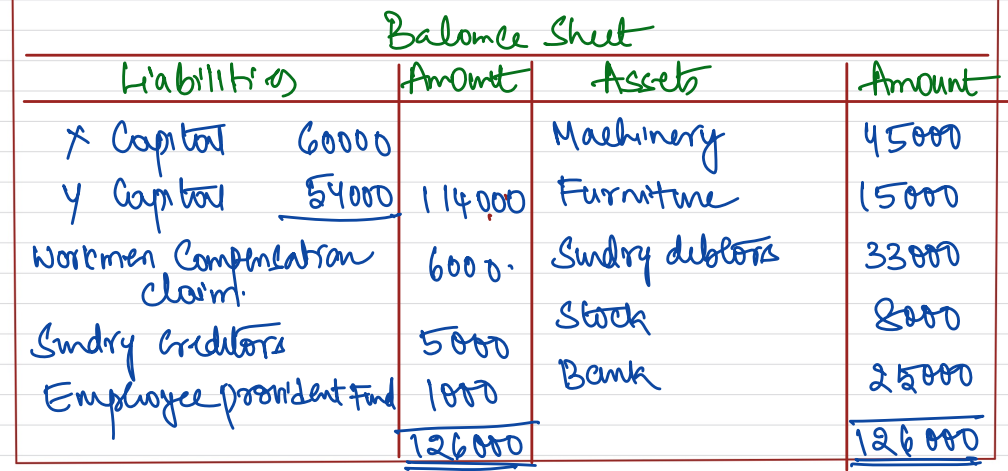 Balance Sheet
Liabilities Amount Assets Amount
X Capital 60000 Machinery 45000
Y Capital 54000 114000 Furniture 15000
Workmen Compensation 6000. Sundry debtors 33000
claim.
Stock 8000
Sundry Creditors 5000
Bank 25000
Employee provident Fund 1000
126000 126000